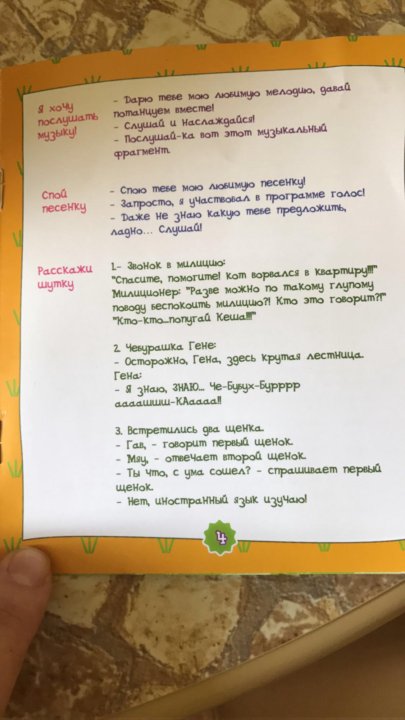 Я хочу
послушать
музыку!
- Дарю тебе мою любимую мелодию, давай
потанцуем вместе!
- Слушай и наслаждайся!
- Послушай-ка вот этот музыкальный
фрагмент.
Спой
песенку
- Спою тебе мою любимую песенку!
- Запросто, я участвовал в программе голос!
- Даже не знаю какую тебе предложить,
ладно... Слушай!
Расскажи
шутку
1.- Звонок в милицию:
"Спасите, помогите! Кот ворвался в квартиру!!!"
Милиционер: "Разве можно по такому глупому
поводу беспокоить милицию?! Кто это говорит?!"
"Кто-кто...попугай Кеша!!!"
2. Чебурашка Гене:
- Осторожно, Гена, здесь крутая лестница.
Гена:
- Я знаю, ЗНАЮ... Че-Бубух-Бурррр
ааааашиши-КАаааа!!
3. Встретились два щенка.
- Гав, - говорит первый щенок.
- Мяу, - отвечает второй щенок.
- Ты что, с ума сошел? - спрашивает первый
щенок.
- Нет, иностранный язык изучаю!
4